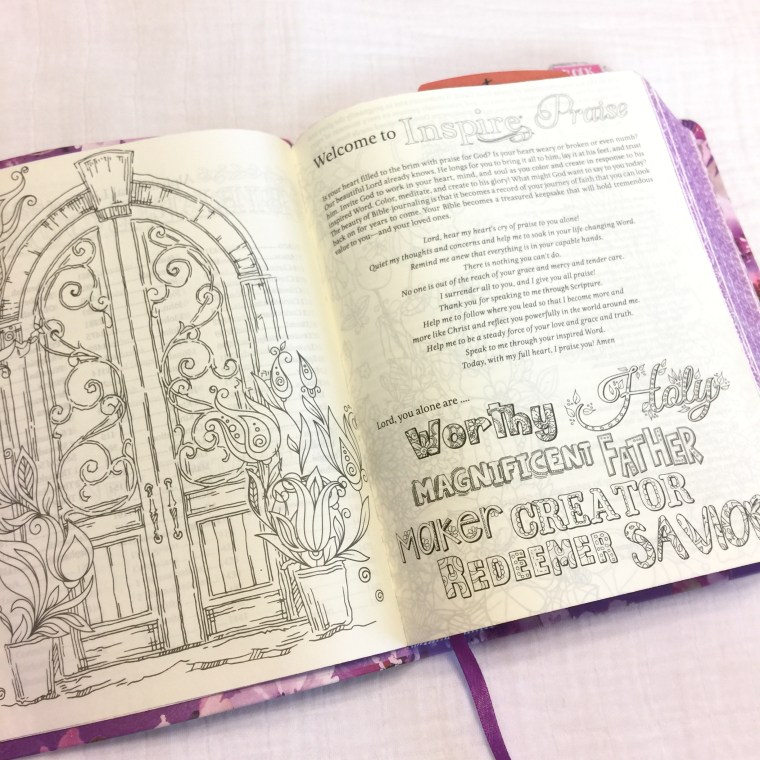 Welcome to Inspire Praise
Is your heart filled to the brim with praise for God? Is your heart weary or broken or even numb?
Our beautiful Lord already knows. He longs for you to bring it all to him, lay it at his feet, and trust
him. Invite God to work in your heart, mind, and soul as you color and create in response to his
inspired Word. Color, meditate, and create to his glory! What might God want to say to you today?
The beauty of Bible journaling is that it becomes a record of your journey of faith that you can look
back on for years to come. Your Bible becomes a treasured keepsake that will hold tremendous
value to you—and your loved ones.
Lord, hear my heart's cry of praise to you alone!
Quiet my thoughts and concerns and help me to soak in your life-changing Word.
Remind me anew that everything is in your capable hands.
There is nothing you can't do.
No one is out of the reach of your grace and mercy and tender care.
I surrender all to you, and I give you all praise!
Thank you for speaking to me through Scripture.
Help me to follow where you lead so that I become more and
more like Christ and reflect you powerfully in the world around me.
Help me to be a steady force of your love and grace and truth.
Speak to me through your inspired Word.
Today, with my full heart, I praise you! Amen
Lord, you alone are ....
Worthy Holy
MAGNIFICENT FATHER
Maker CREATOR
REDEEMER SAVIO